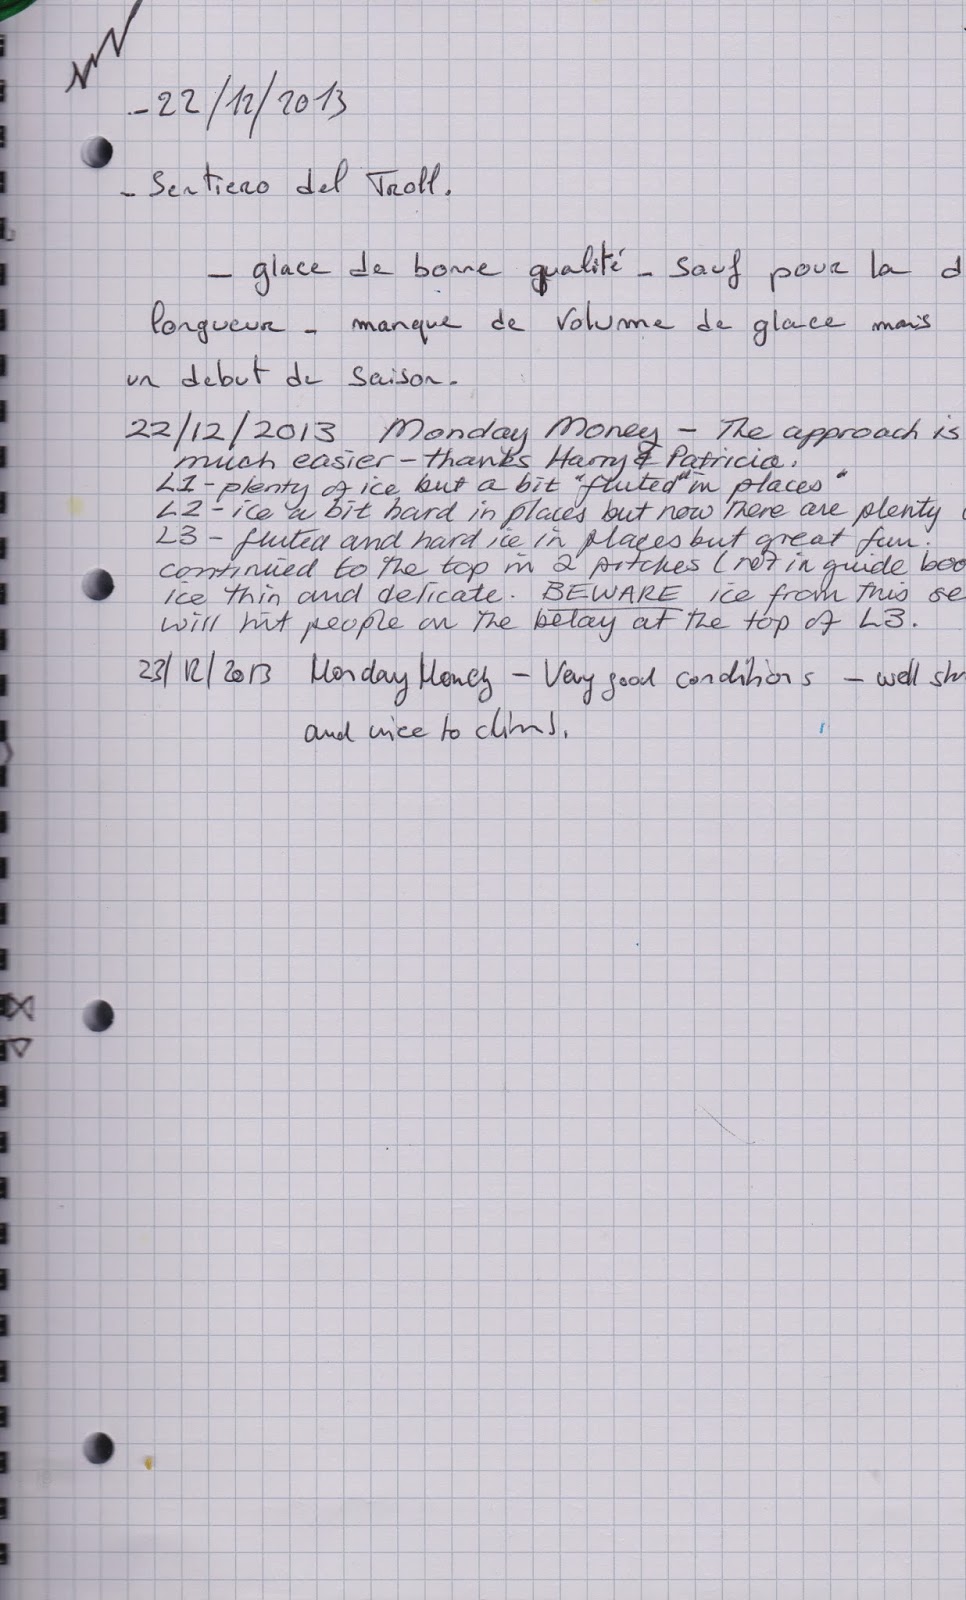 - 22/12/2013
- Sentiero del Troll.
- glace de bonne qualité - sauf pour la d
longueur - manque de volume de glace mais
un debut de saison.
22/12/2013 Monday Money - The approach is
much easier - thanks Harry & Patricia.
L1 - plenty of ice but a bit "fluted" in places"
L2 - ice a bit hard in places but now there are plenty
L3 - fluted and hard ice in places but great fun.
continued to the top in 2 pitches (not in guide boo
ice thin and delicate. BEWARE ice from this se
will hit people on the belay at the top of L3.
23/12/2013 Monday Money - Very good conditions - well
and nice to climb.